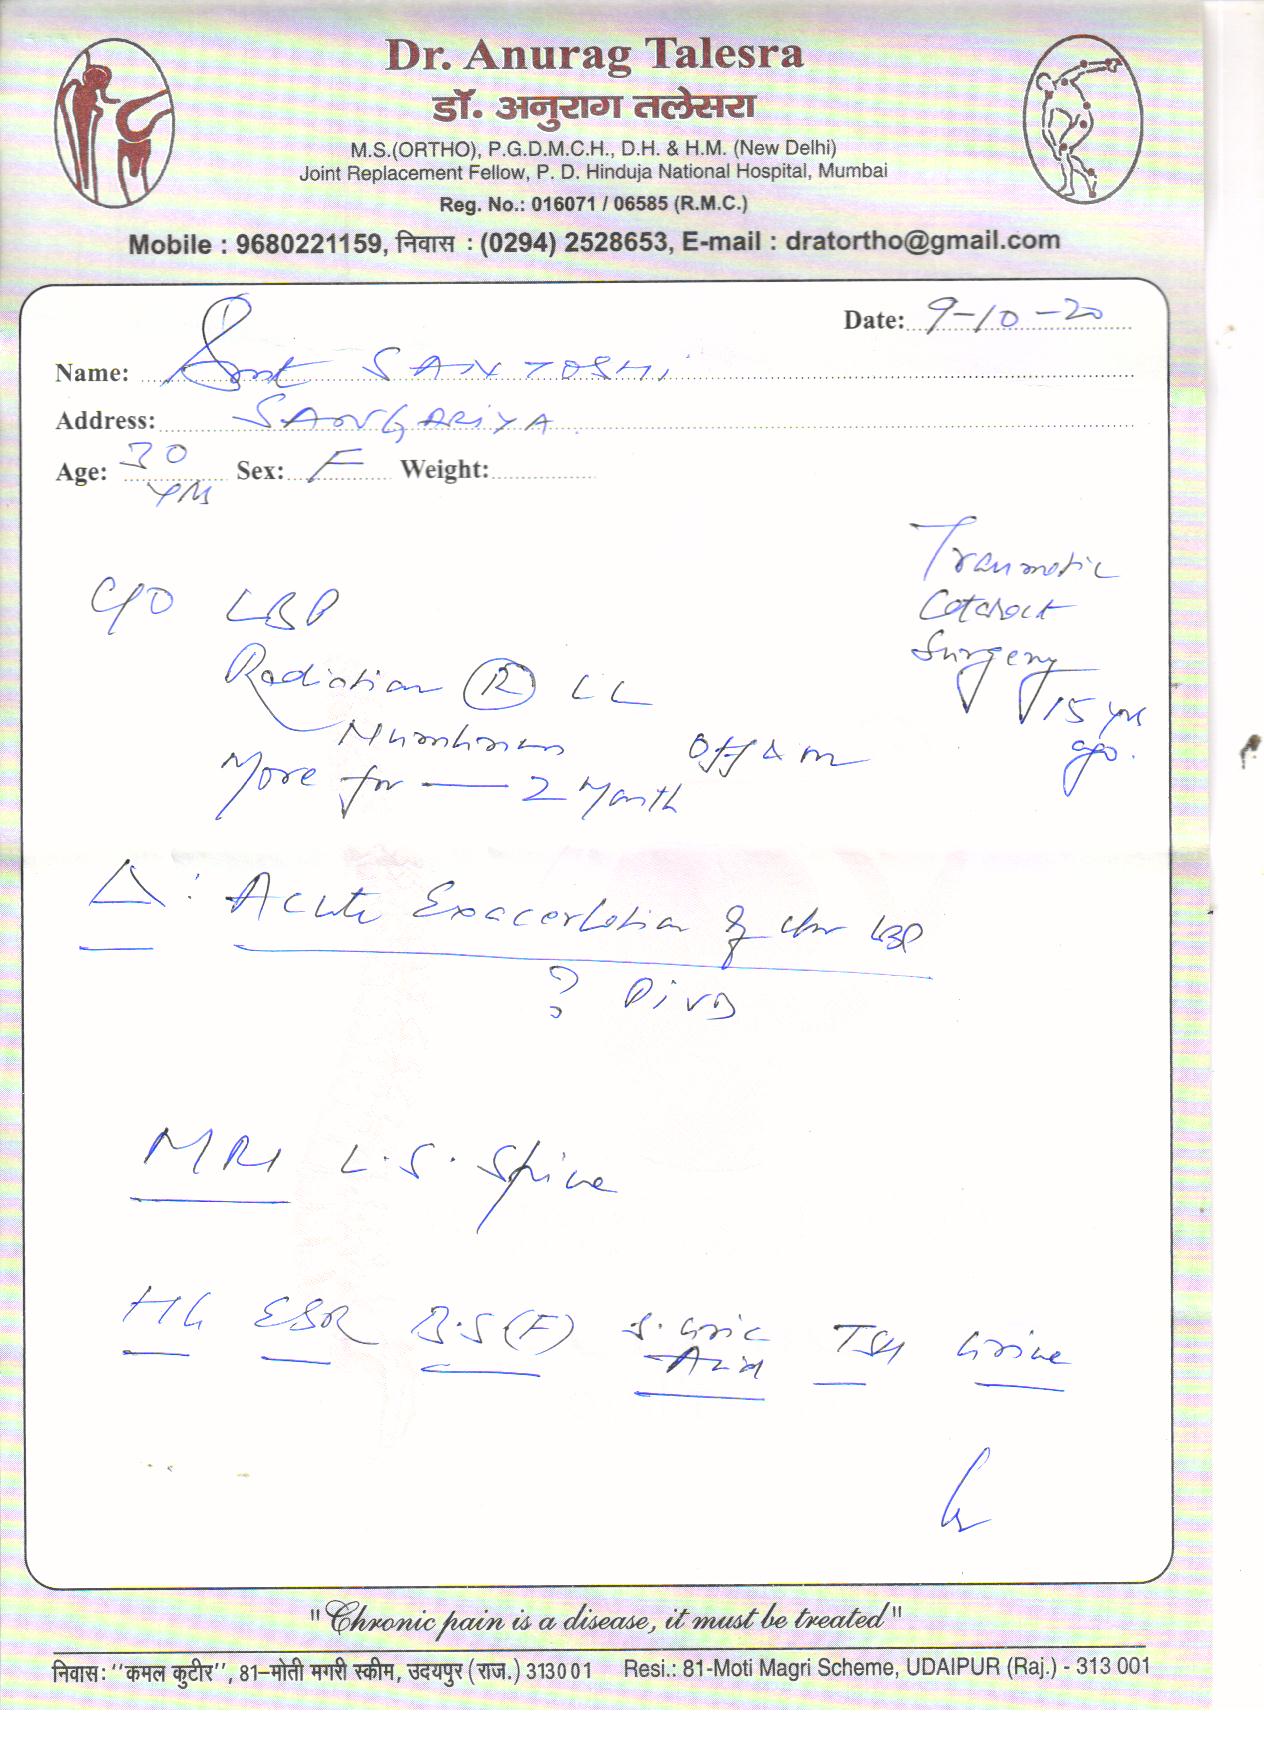 Dr. Anurag Talesra
डॉ. अनुराग तलेसरा
M.S.(ORTHO), P.G.D.M.C.H., D.H. & H.M. (New Delhi)
Joint Replacement Fellow, P. D. Hinduja National Hospital, Mumbai
Reg. No.: 016071 / 06585 (R.M.C.)
Mobile : 9680221159, निवास : (0294) 2528653, E-mail : dratortho@gmail.com
Date: 9-10-20
Name: Smt SANTOSHI
Address: SANGARIYA
Age: 30 yrs Sex: F Weight:
Traumatic
Cataract
Surgery
15 yrs
ago.
C/O LBP
Radiation R LL
Numbness
More for — 2 Month
Δ: Acute Exacerbation of chr LBP
? PIVD
MRI L.S. Spine
Hb ESR B.S(F) S. Uric Acid TSH Urine
"Chronic pain is a disease, it must be treated"
निवास: "कमल कुटीर", 81–मोती मगरी स्कीम, उदयपुर (राज.) 313001 Resi.: 81-Moti Magri Scheme, UDAIPUR (Raj.) - 313 001